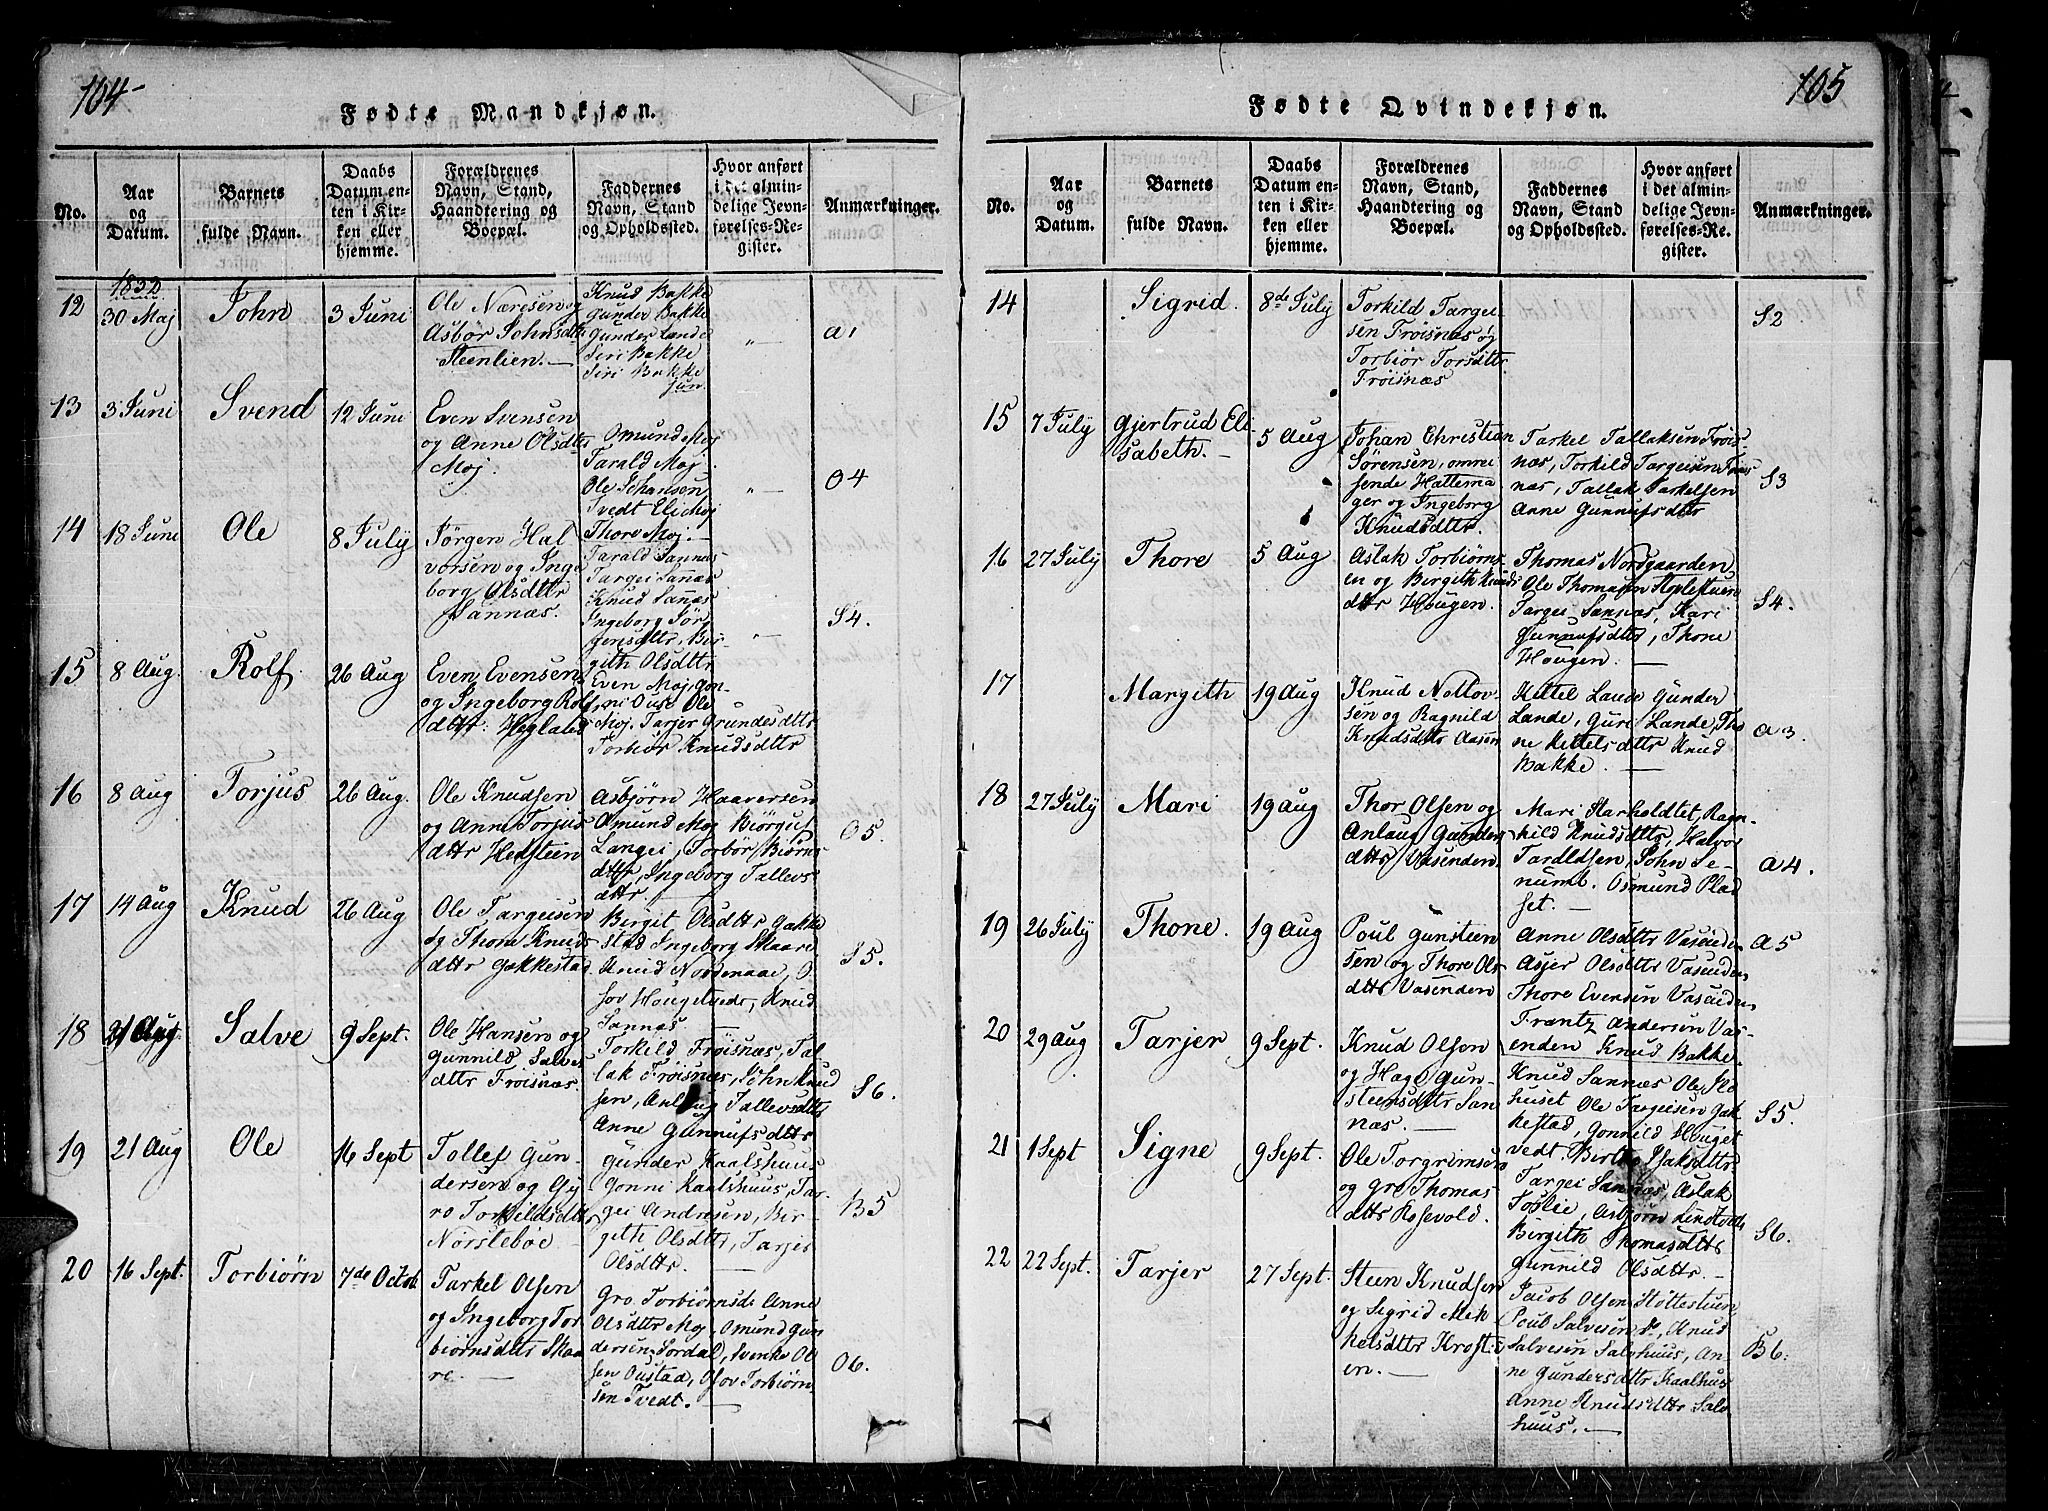 104
Fødte Mandkjøn.
No.
Aar
og
Datum.
Barnets
fulde Navn.
Daabs
Datum en-
ten i Kir-
ken eller
hjemme.
Forældrenes
Navn, Stand,
Haandtering og
Boepæl.
Faddernes
Navn, Stand
og Opholdssted.
Hvor anført
i det almin-
delige Jevn-
førelses-Re-
gister.
Anmærkninger.
1832
12
30 Maj
John
3 Juni
Ole Næresen og
Asbør Johnsdtr
Steenlien. —
Knud Bakke
Gunder Bakke
Gunder Lande
Siri Bakke
Siri Bakke
jun.
" —
a1
13
3 Juni
Svend
12 Juni
Even Svensen
og Anne Olsdttr
Moj.
Omund Moj
Tarald Moj
Ole Johansen
Tvedt Eli Moj
Thore Moj. —
" —
O4
14
18 Juni
Ole
8 July
Jørgen Hal
vorsen og Inge
borg Olsdttr
Sannæs.
Tarald Sannæs
Targei Sannæs
Knud Sannæs
Ingeborg Jør
gensdttr, Bir-
gith Olsdttr
" —
S4.
15
8 Aug.
Rolf
26 Aug
Even Evensen
og Ingeborg Rolf
dttr. Hegland
Even Moj, Gon-
ni Ouse Ole
Moj. Tarjer Grundesdttr
Torbiør Knudsdttr
16
8 Aug
Torjus
26 Aug.
Ole Knudsen
og Anne Torjus
dttr Heisteen
Asbjørn Haaversen
Amund Moj Biørgul
Langei, Torbør Biørns
dttr, Ingeborg Tallevs
dttr —
O5.
17
14 Aug
Knud
26 Aug
Ole Targeisen
og Thore Knuds
dttr Gakkestad
Birgit Olsdttr Gakke
stad Ingeborg Skaare
Knud Nordenaae, O
sov Hougetvedt, Knud
Sannæs —
S5.
18
21 Aug
Salve
9 Sept.
Ole Hansen og
Gunnild Salves
dttr Frøisnæs.
Torkild Frøisnæs, Tal
lak Frøisnæs, John Knud
sen, Anlaug Tallevsdttr
Anne Gunnufsdttr
S6.
19
21 Aug
Ole
16 Sept
Tollef Gun-
dersen og Gy
ro Torkildsdttr
Nørsteboe —
Gunder Kaalshuus
Gonni Kaalshuus, Tar-
gei Andresen, Bir-
gith Olsdttr, Tarjer
Olsdttr. —
B5
20
16 Sept.
Torbiørn
7de Octob
Tarkel Olsen
og Ingeborg Tor
biørnsdttr Skaa
re. —
Gro Torbiørnsdr Anne
Olsdttr Moj, Omund Gun
dersen Tordal, Svenke Ol
sen Oustad, Osov Torbiørn
sen Tvedt. —
O6.
105
Fødte Qvindekjøn.
No.
Aar
og
Datum.
Barnets
fulde Navn.
Daabs
Datum en-
ten i Kir-
ken eller
hjemme.
Forældrenes
Navn, Stand,
Haandtering og
Boepæl.
Faddernes
Navn, Stand
og Opholdssted.
Hvor anført
i det almin-
delige Jevn-
førelses-Re-
gister.
Anmærkninger.
14
Sigrid.
8de July
Torkild Targei
sen Frøisnæs og
Torbiør Torsdttr
Frøisnæs
S2
15
7 July
Gjertrud Eli-
sabeth. —
5 Aug
Johan Christian
Sørensen, omrei
sende Hattema
ger og Ingeborg
Knudsdttr.
Tarkel Tallaksen Frøis-
næs, Torkild Targeisen Frøis
næs, Tallak Tarkelsen
Anne Gunnufsdttr
S3
16
27 July
Thore
5 Aug
Aslak Torbiørns-
en og Birgith Knuds
dttr Hougen.
Thomas Nordgaarden
Ole Thomasen Aplestuen
Targei Sannæs, Kari
Gunnufsdttr, Thone
Hougen. —
S4.
17
Margith
19 Aug
Knud Nottov-
sen og Ragnild
Knudsdttr Aasen
Kittel Lande Gunder
Lande, Guri Lande, Tho
ne Kittelsdttr Knud
Bakke. —
a3.
18
27 July
Mari
19 Aug
Thor Olsen og
Anlaug Gunders
dttr Vasenden
Mari Harholdtet, Ragn-
hild Knudsdttr, Halvor
Tardldsen, John Se-
numt. Osmund Plad
set. —
a4.
19
26 July
Thone.
19 Aug
Poul Gunsteen
sen og Thore Ols
dttr Vasenden
Anne Olsdttr Vasenden
Asjer Olsdttr Vasenden
Thore Evensen Vasenden
Frantz Andersen Vas-
enden Knud Bakke.
a5
20
29 Aug
Tarjer
9 Sept.
Knud Olsen
og Hage Gun-
steensdttr San
næs. —
Knud Sannæs Ole Slo
huset Ole Targeisen Gak
kestad, Gonnild Houget
vedt. Birthe Isaksdttr
S5.
21
1 Sept
Signe
9 Sept.
Ole Torgrimsen
og Gro Thomas
dttr Rosevold.
Targei Sannæs, Aslak
Foslie, Asbjørn Lindtvedt
Birgith Thomasdttr
Gunnild Olsdttr. —
S6.
22
22 Sept.
Tarjer
27 Sept.
Steen Knudsen
og Sigrid Mik
kelsdttr Krost-
en. —
Jacob Olsen Støttesteen
Poul Salvesen Do, Knud
Salvesen Salvhuus, An-
ne Gundersdttr Kaalhuus
Anne Knudsdttr Salv-
huus. —
B6.